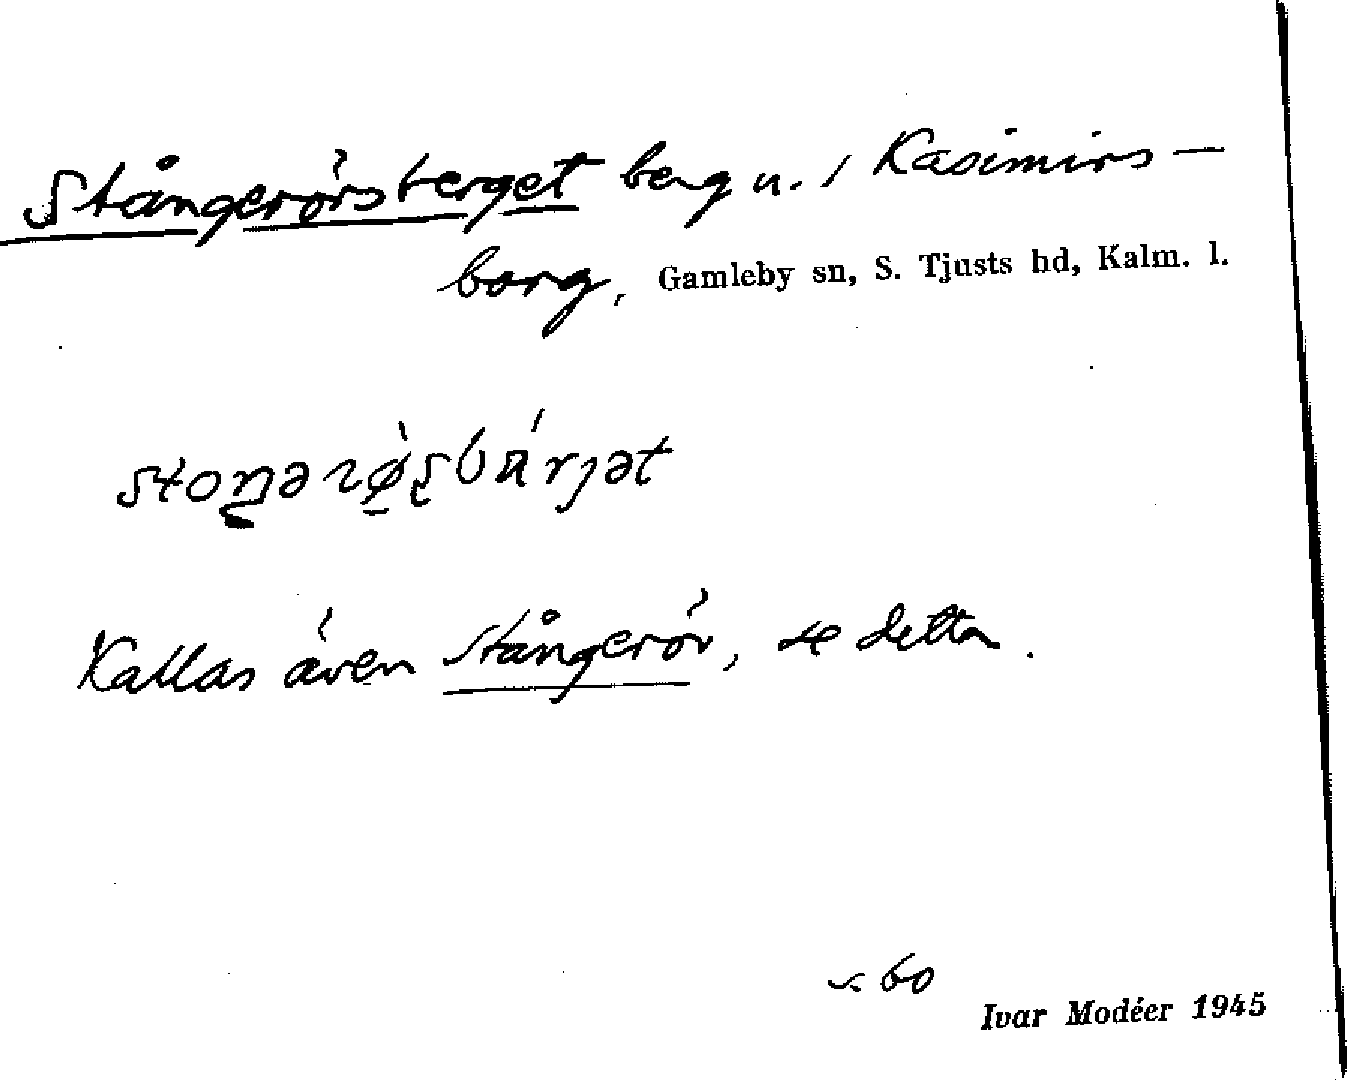 Stångerörsberget berg n. i Kasimirs-
borg, Gamleby sn, S. Tjusts hd, Kalm. l.
Kallas även Stångerör, se detta.
s. 60
Ivar Modéer 1945